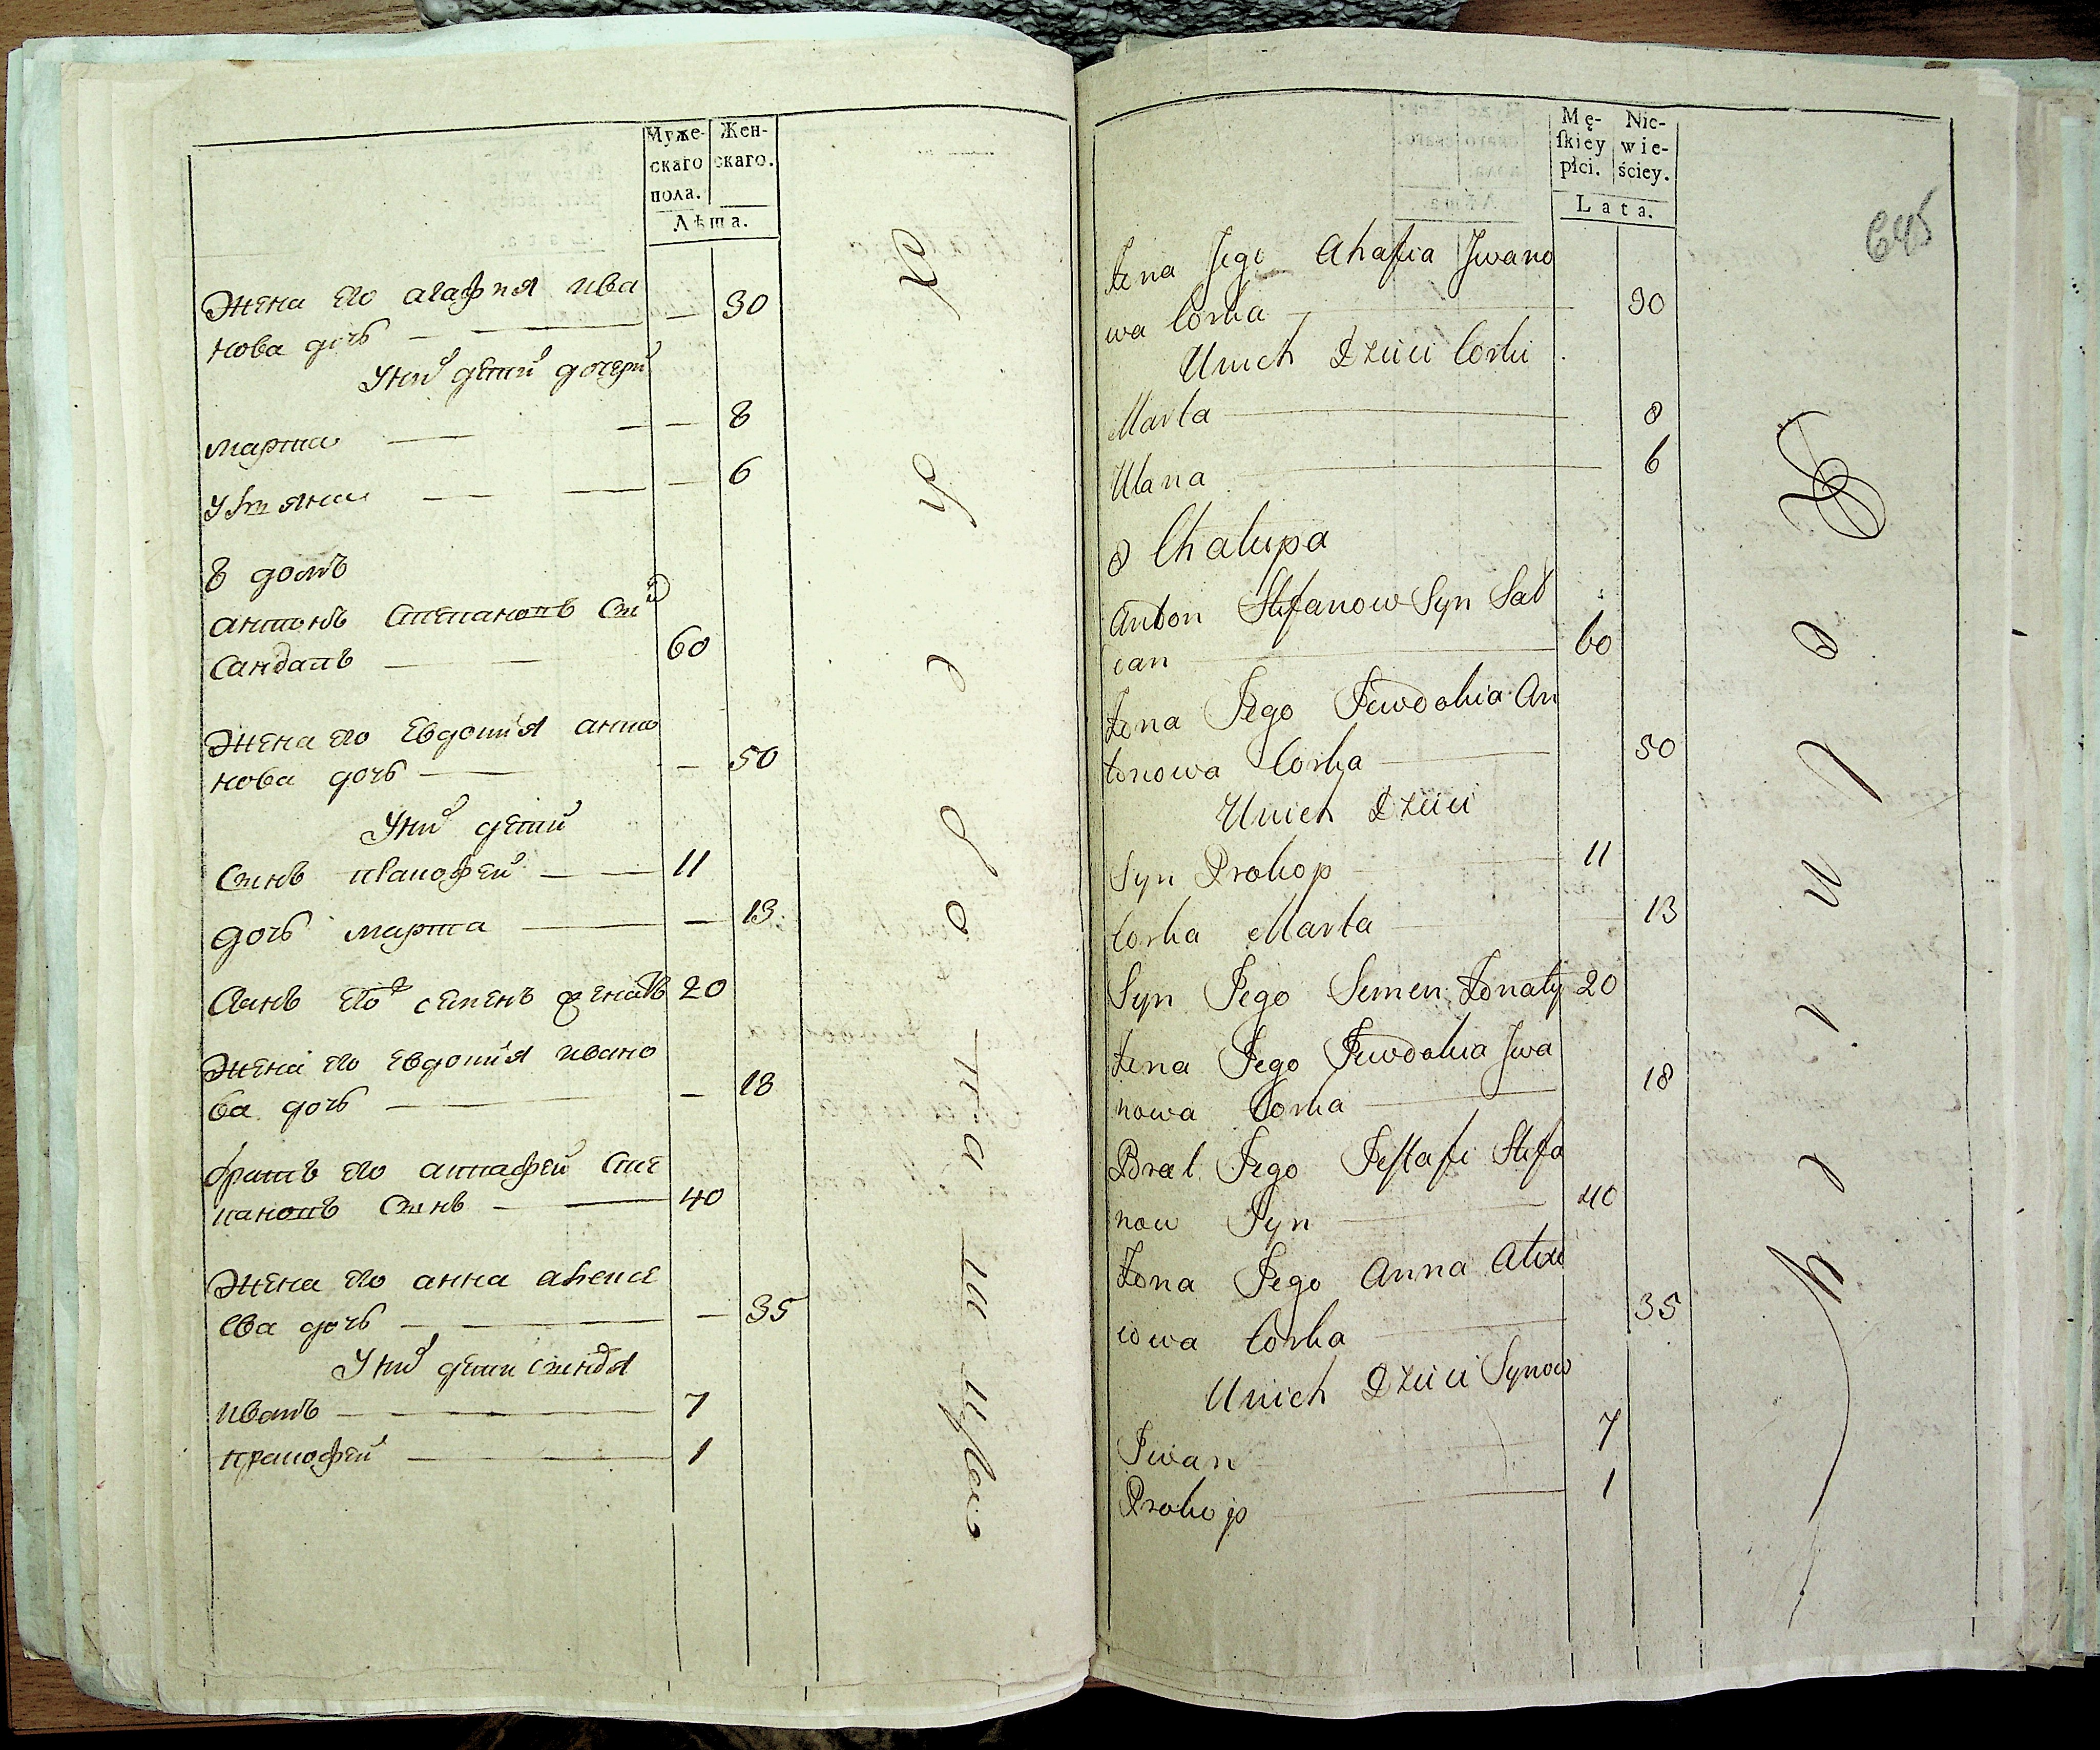 Муже-
скаго
пола.
Жен-
скаго.
Лѣта.
Жена его агафия ива
нова дочь — 30
У них детей дочери
марта — — 8
Улияна — — 6
8 домъ
антонъ Степановъ Сы
60
Жена его Евдокия анто
нова дочь — 50
У них детей
Сынъ — 11
дочь марта — 13
Сынъ его семенъ женатъ 20
Жена его Евдокия ивано
ва дочь — 18
братъ его Сте
пановъ Сынъ — 40
Жена его анна алексе
ева дочь — 35
У них дети сыновя
иванъ — 7
— 1
Mę-
skiey
płci.
Nie-
wie-
ściey.
Lata.
645
Żena Jego Ahafia Jwano
wa Corka 30
Unich Dzieci Corki
Marta 8
Ulana 6
8 Chalupa
Anton Stefanow Syn
60
Żona Jego Jewdokia An
tonowa Corka 50
Unich Dzieci
Syn Prokop 11
Corka Marta 13
Syn Jego Semen Żonaty 20
Żena Jego Jewdokia Jwa
nowa Corka 18
Brat Jego Jestafi Stefa
now Syn 40
Żona Jego Anna Alexi
iowa Corka 35
Unich Dzieci Synow
Iwan 7
Prokop 1